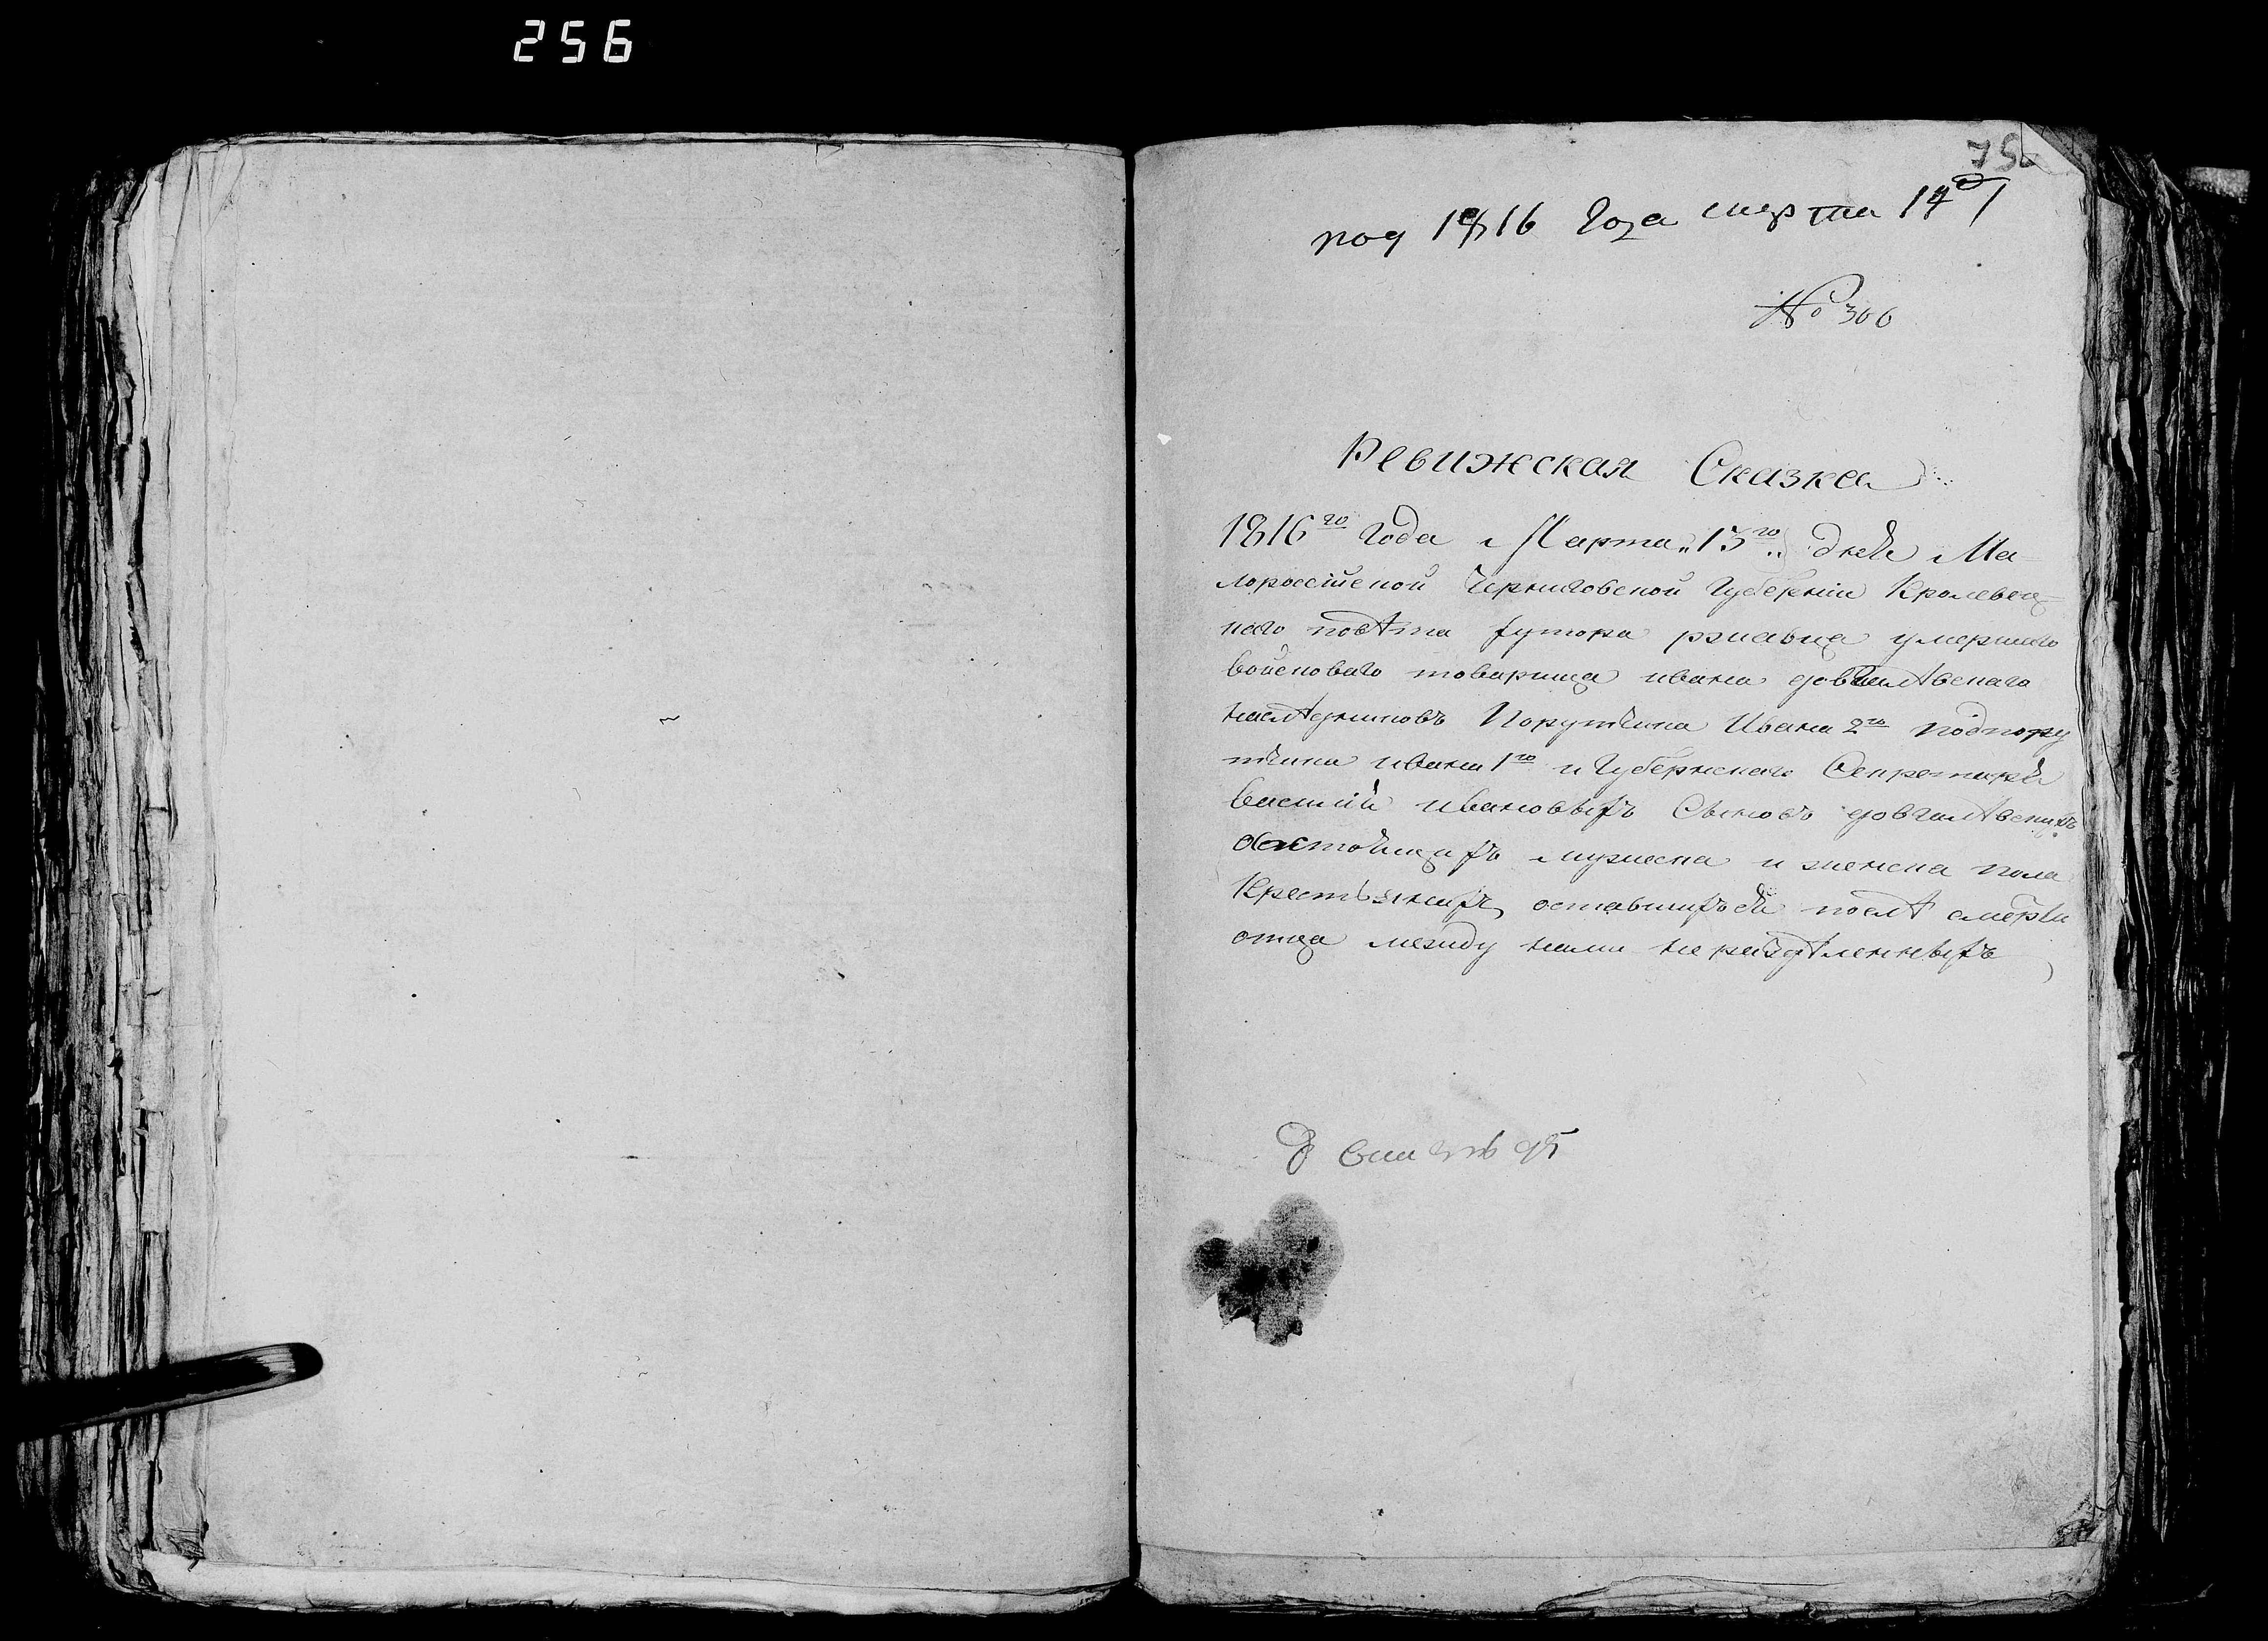 256
75
под 1816 года марта 14 д
№ 306
Ревижская Сказка
1816го года Марта 13го дня Ма-
лороссійской Черниговской Губерніи Кролевец-
каго повѣта хутора ржавца умершаго
войсковаго товарища ивана довгелѣвскаго
наслѣдниковъ Порутчика Ивана 2го подпору
тчика ивана 1го и Губернскаго Секретаря
василія ивановыхъ Сыновъ довгелѣвскихъ
о состоящихъ мужеска и женска пола
Крестьянахъ оставшихся послѣ смерти
отца между нами не раздѣленныхъ